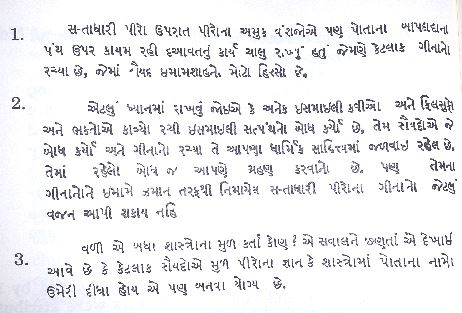 1. સત્તાધારી પીરો ઉપરાત પીરોના અમુક વંશજોએ પણ પોતાના બાપદાદાના
પંથ ઉપર કાયમ રહી દઆવતનું કાર્ય ચાલુ રાખ્યું હતું જેમણે કેટલાક ગીનાનો
રચ્યા છે, જેમાં સૈયદ ઇમામશાહનો મોટો હિસ્સો છે.
2. એટલું ધ્યાનમાં રાખવું જોઇએ કે અનેક ઇસમાઇલી કવીઓ અને ફિલસુફો
અને ભકતોએ કાવ્યો રચી ઇસમાઇલી સત્પંથનો બોધ કર્યો છે, તેમ સૈયદોએ જે
બોધ કર્યો અને ગીનાનો રચ્યા તે આપણા ધાર્મિક સાહિત્યમાં જળવાઇ રહેલ છે,
તેમાં રહેલો બોધ જ આપણે ગ્રહણ કરવાનો છે. પણ તેમના
ગીનાનોને ઇમામે ઝમાન તરફથી નિમાયેલ સત્તાધારી પીરોના ગીનાનો જેટલું
વજન આપી શકાય નહિ
3. વળી એ બધા શાસ્ત્રોના મુળ કર્તા કોણ? એ સવાલને છણતાં એ દેખાઇ
આવે છે કે કેટલાક સૈયદોએ મુળ પીરોના જ્ઞાન કે શાસ્ત્રોમાં પોતાના નામો
ઉમેરી દીધા હોય એ પણ બનવા યોગ્ય છે.